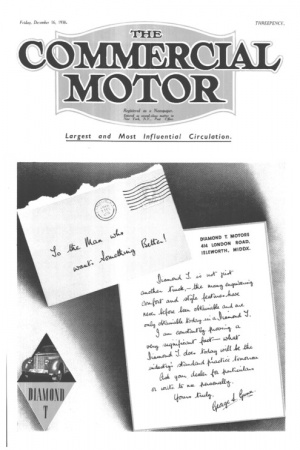 Friday, December 18, 1936.
THREEPENCE.
THE
COMMERCIAL
MOTOR
Registered as a Newspaper
New York, N.Y. Post Office
Largest and Most Influential Circulation.
To the Man who
wants Something Better!
DIAMOND T MOTORS
414 LONDON ROAD,
ISLEWORTH, MIDDX.
Diamond T. is not just
another truck,—the many engineering
comfort and style features have
never before been obtainable and are
only obtainable today in a Diamond T.
I am constantly proving a
very significant fact— what
Diamond T. does today will be the
industry's standard practice tomorrow
Ask your dealer for particulars
or write to me personally.
Yours truly,
George A.
DIAMOND
T